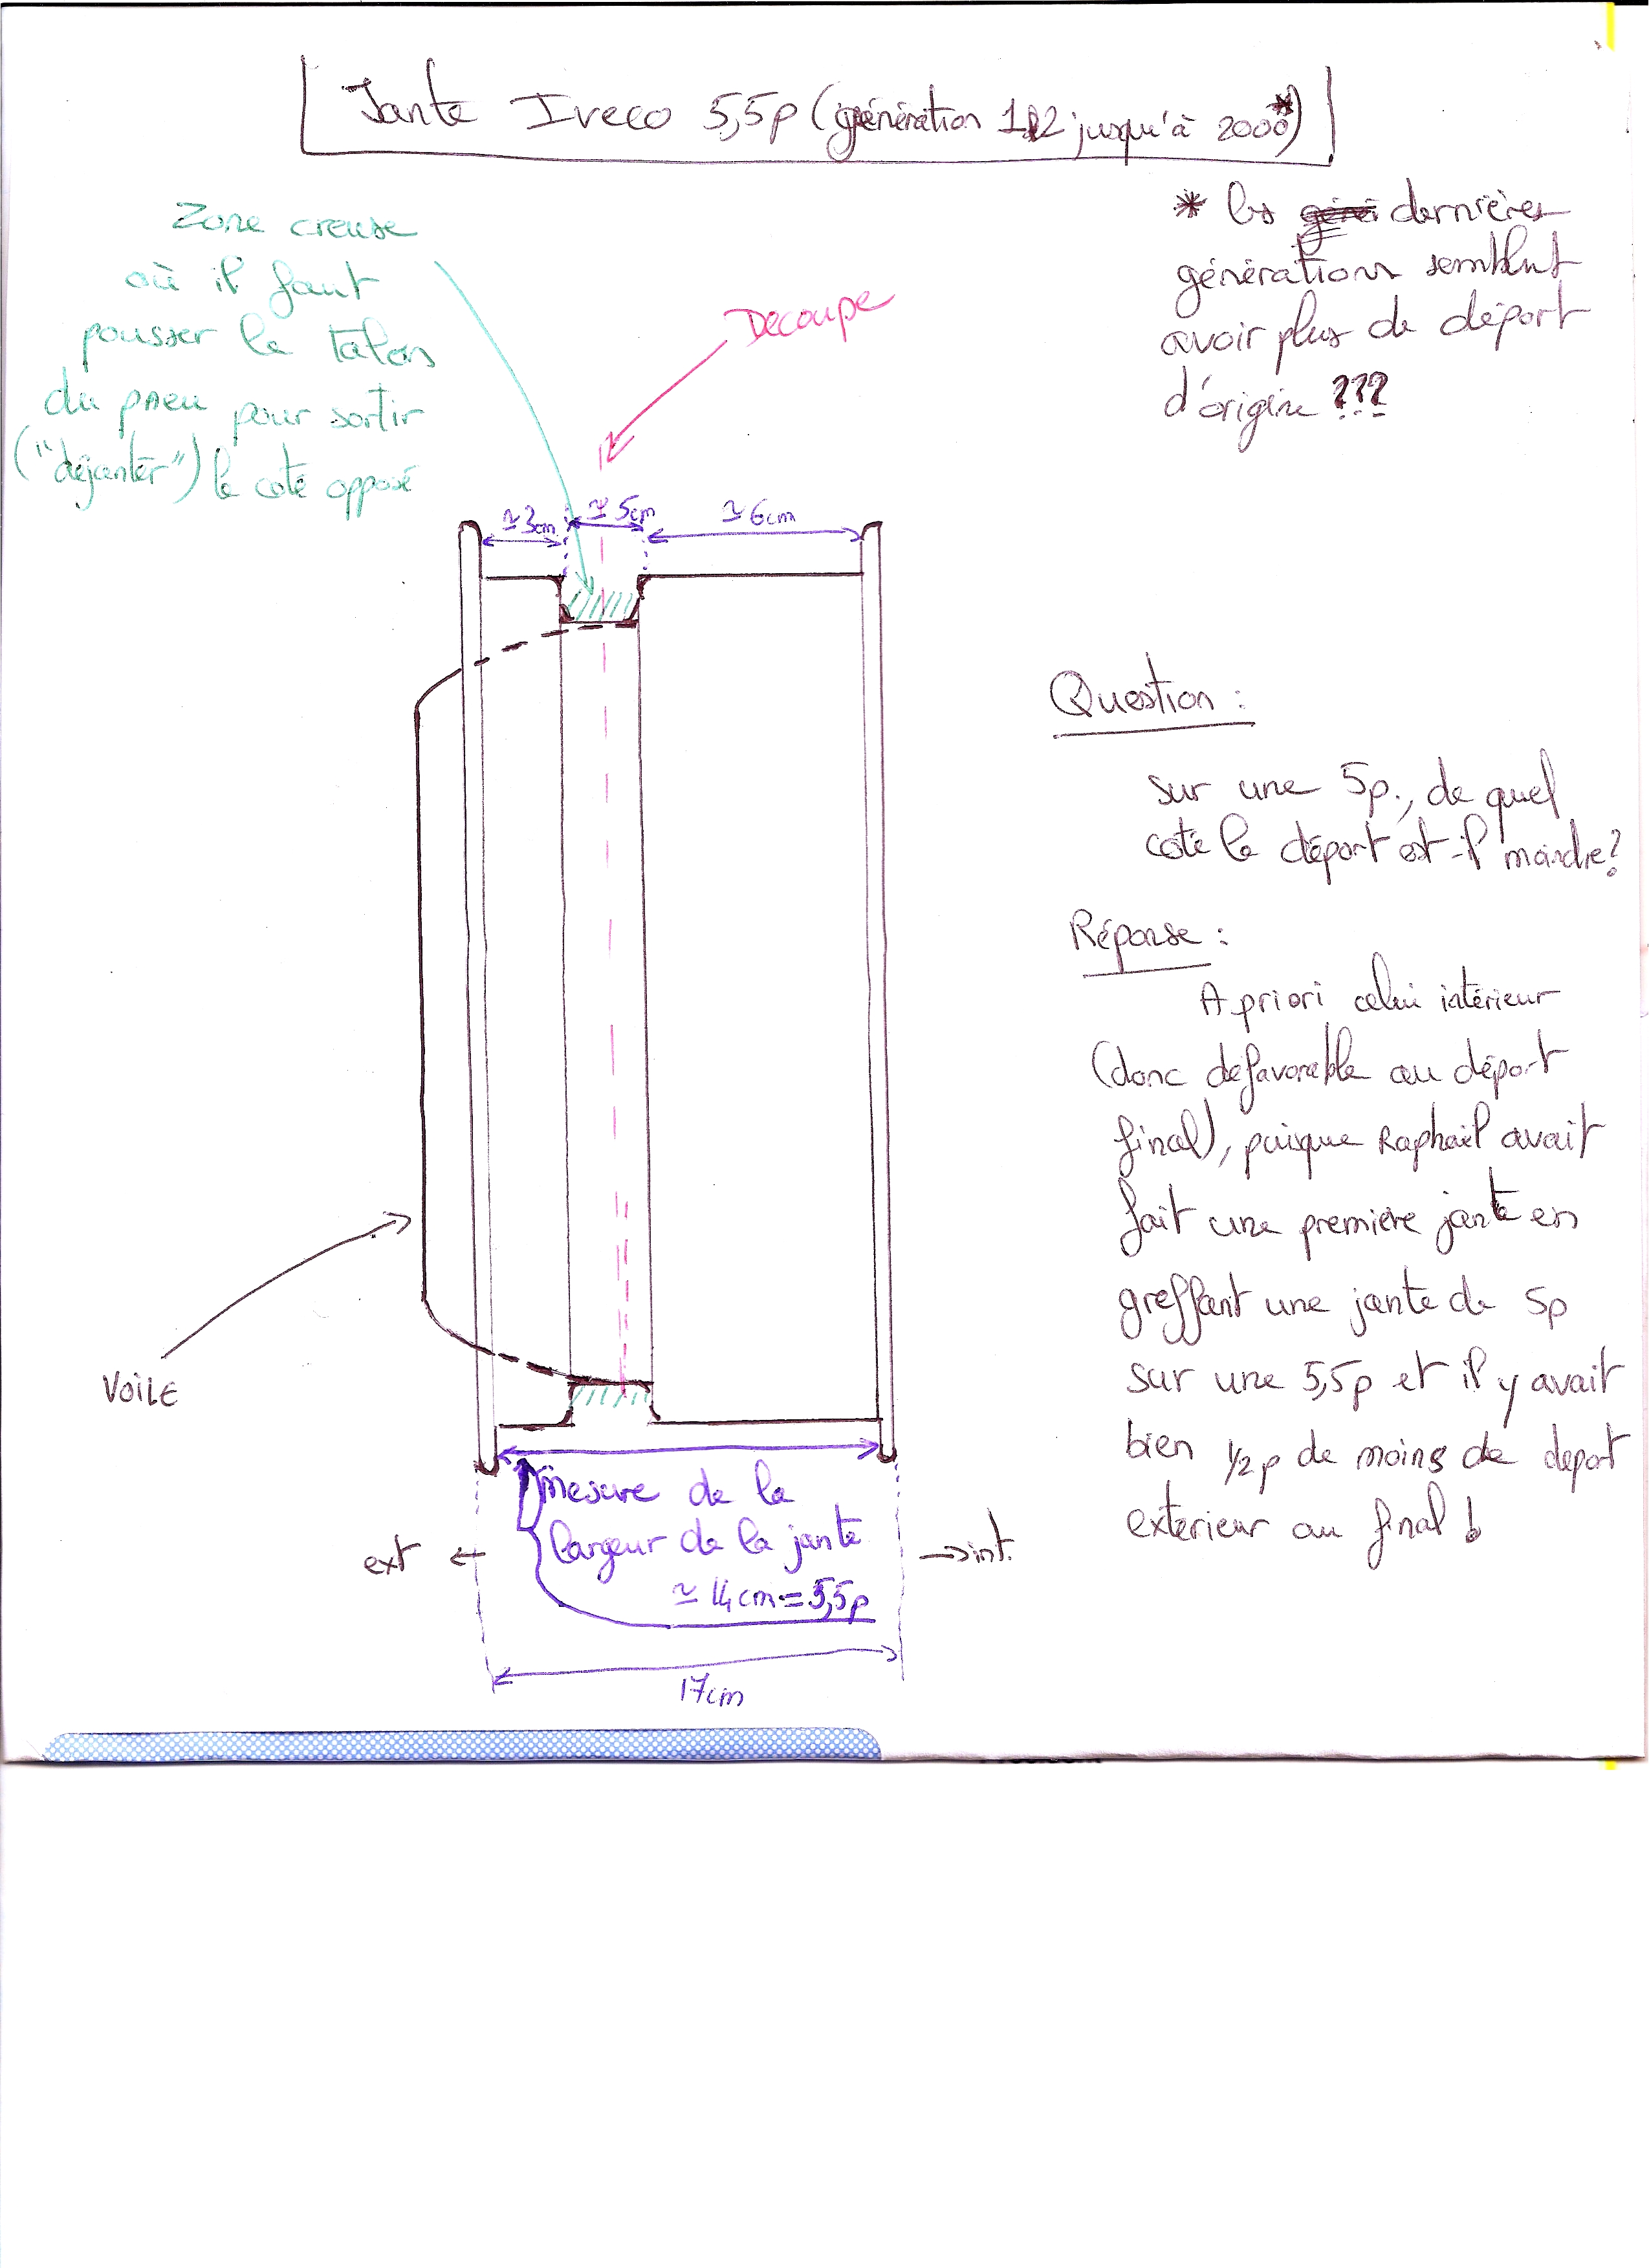 Jante Iveco 5,5p (génération 1&2 jusqu'à 2000*)
* les dernières
générations semblent
avoir plus de déport
d'origine ???
Zone creuse
où il faut
pousser le talon
du pneu pour sortir
("déjanter") le coté opposé
Découpe
≃3cm
≃5cm
≃6cm
Question :
sur une 5p., de quel
coté le déport est-il moindre?
Réponse :
A priori celui intérieur
(donc défavorable au déport
final), puisque Raphaël avait
fait une première jante en
greffant une jante de 5p
sur une 5,5p et il y avait
bien 1/2p de moins de déport
extérieur au final !
VOILE
mesure de la
largeur de la jante
≃ 14cm = 5,5p
ext ←
→ int.
17cm